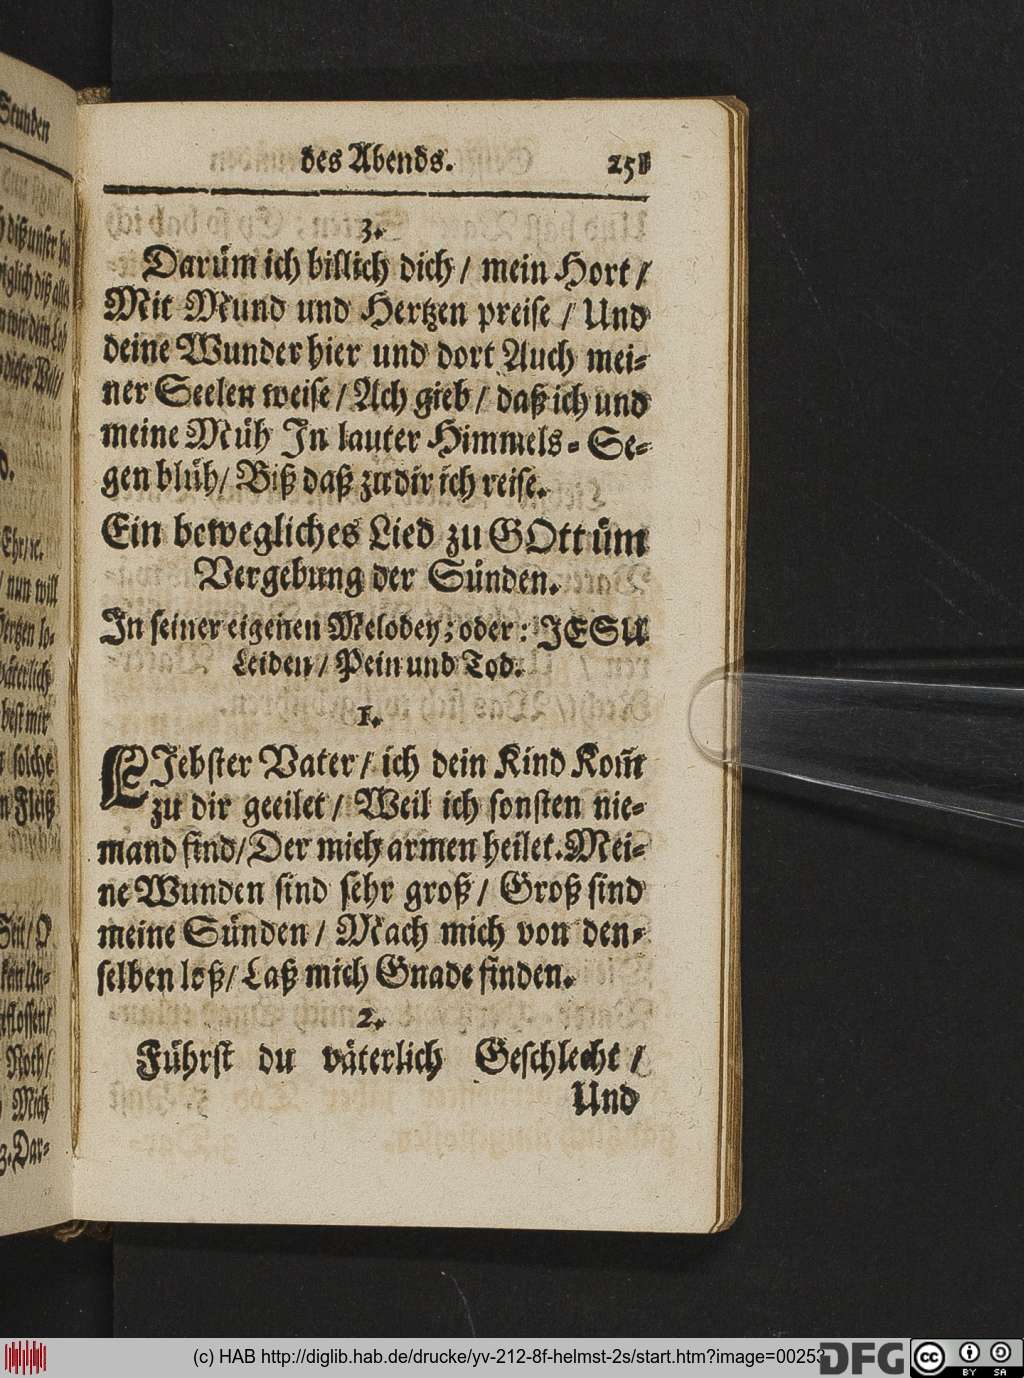 Stunden
des Abends. 251
3.
Darüm ich billich dich / mein Hort /
Mit Mund und Hertzen preise / Und
deine Wunder hier und dort Auch mei-
ner Seelen weise / Ach gieb / daß ich und
meine Müh In lauter Himmels-Se-
gen blüh / Biß daß zu dir ich reise.
Ein bewegliches Lied zu GOtt üm
Vergebung der Sünden.
In seiner eigenen Melodey; oder: JESU
Leiden / Pein und Tod.
1.
LJebster Vater / ich dein Kind Kom̃t
zu dir geeilet / Weil ich sonsten nie-
mand find / Der mich armen heilet. Mei-
ne Wunden sind sehr groß / Groß sind
meine Sünden / Mach mich von den-
selben loß / Laß mich Gnade finden.
2.
Führst du väterlich Geschlecht /
Und
(c) HAB http://diglib.hab.de/drucke/yv-212-8f-helmst-2s/start.htm?image=00253
DFG cc BY SA